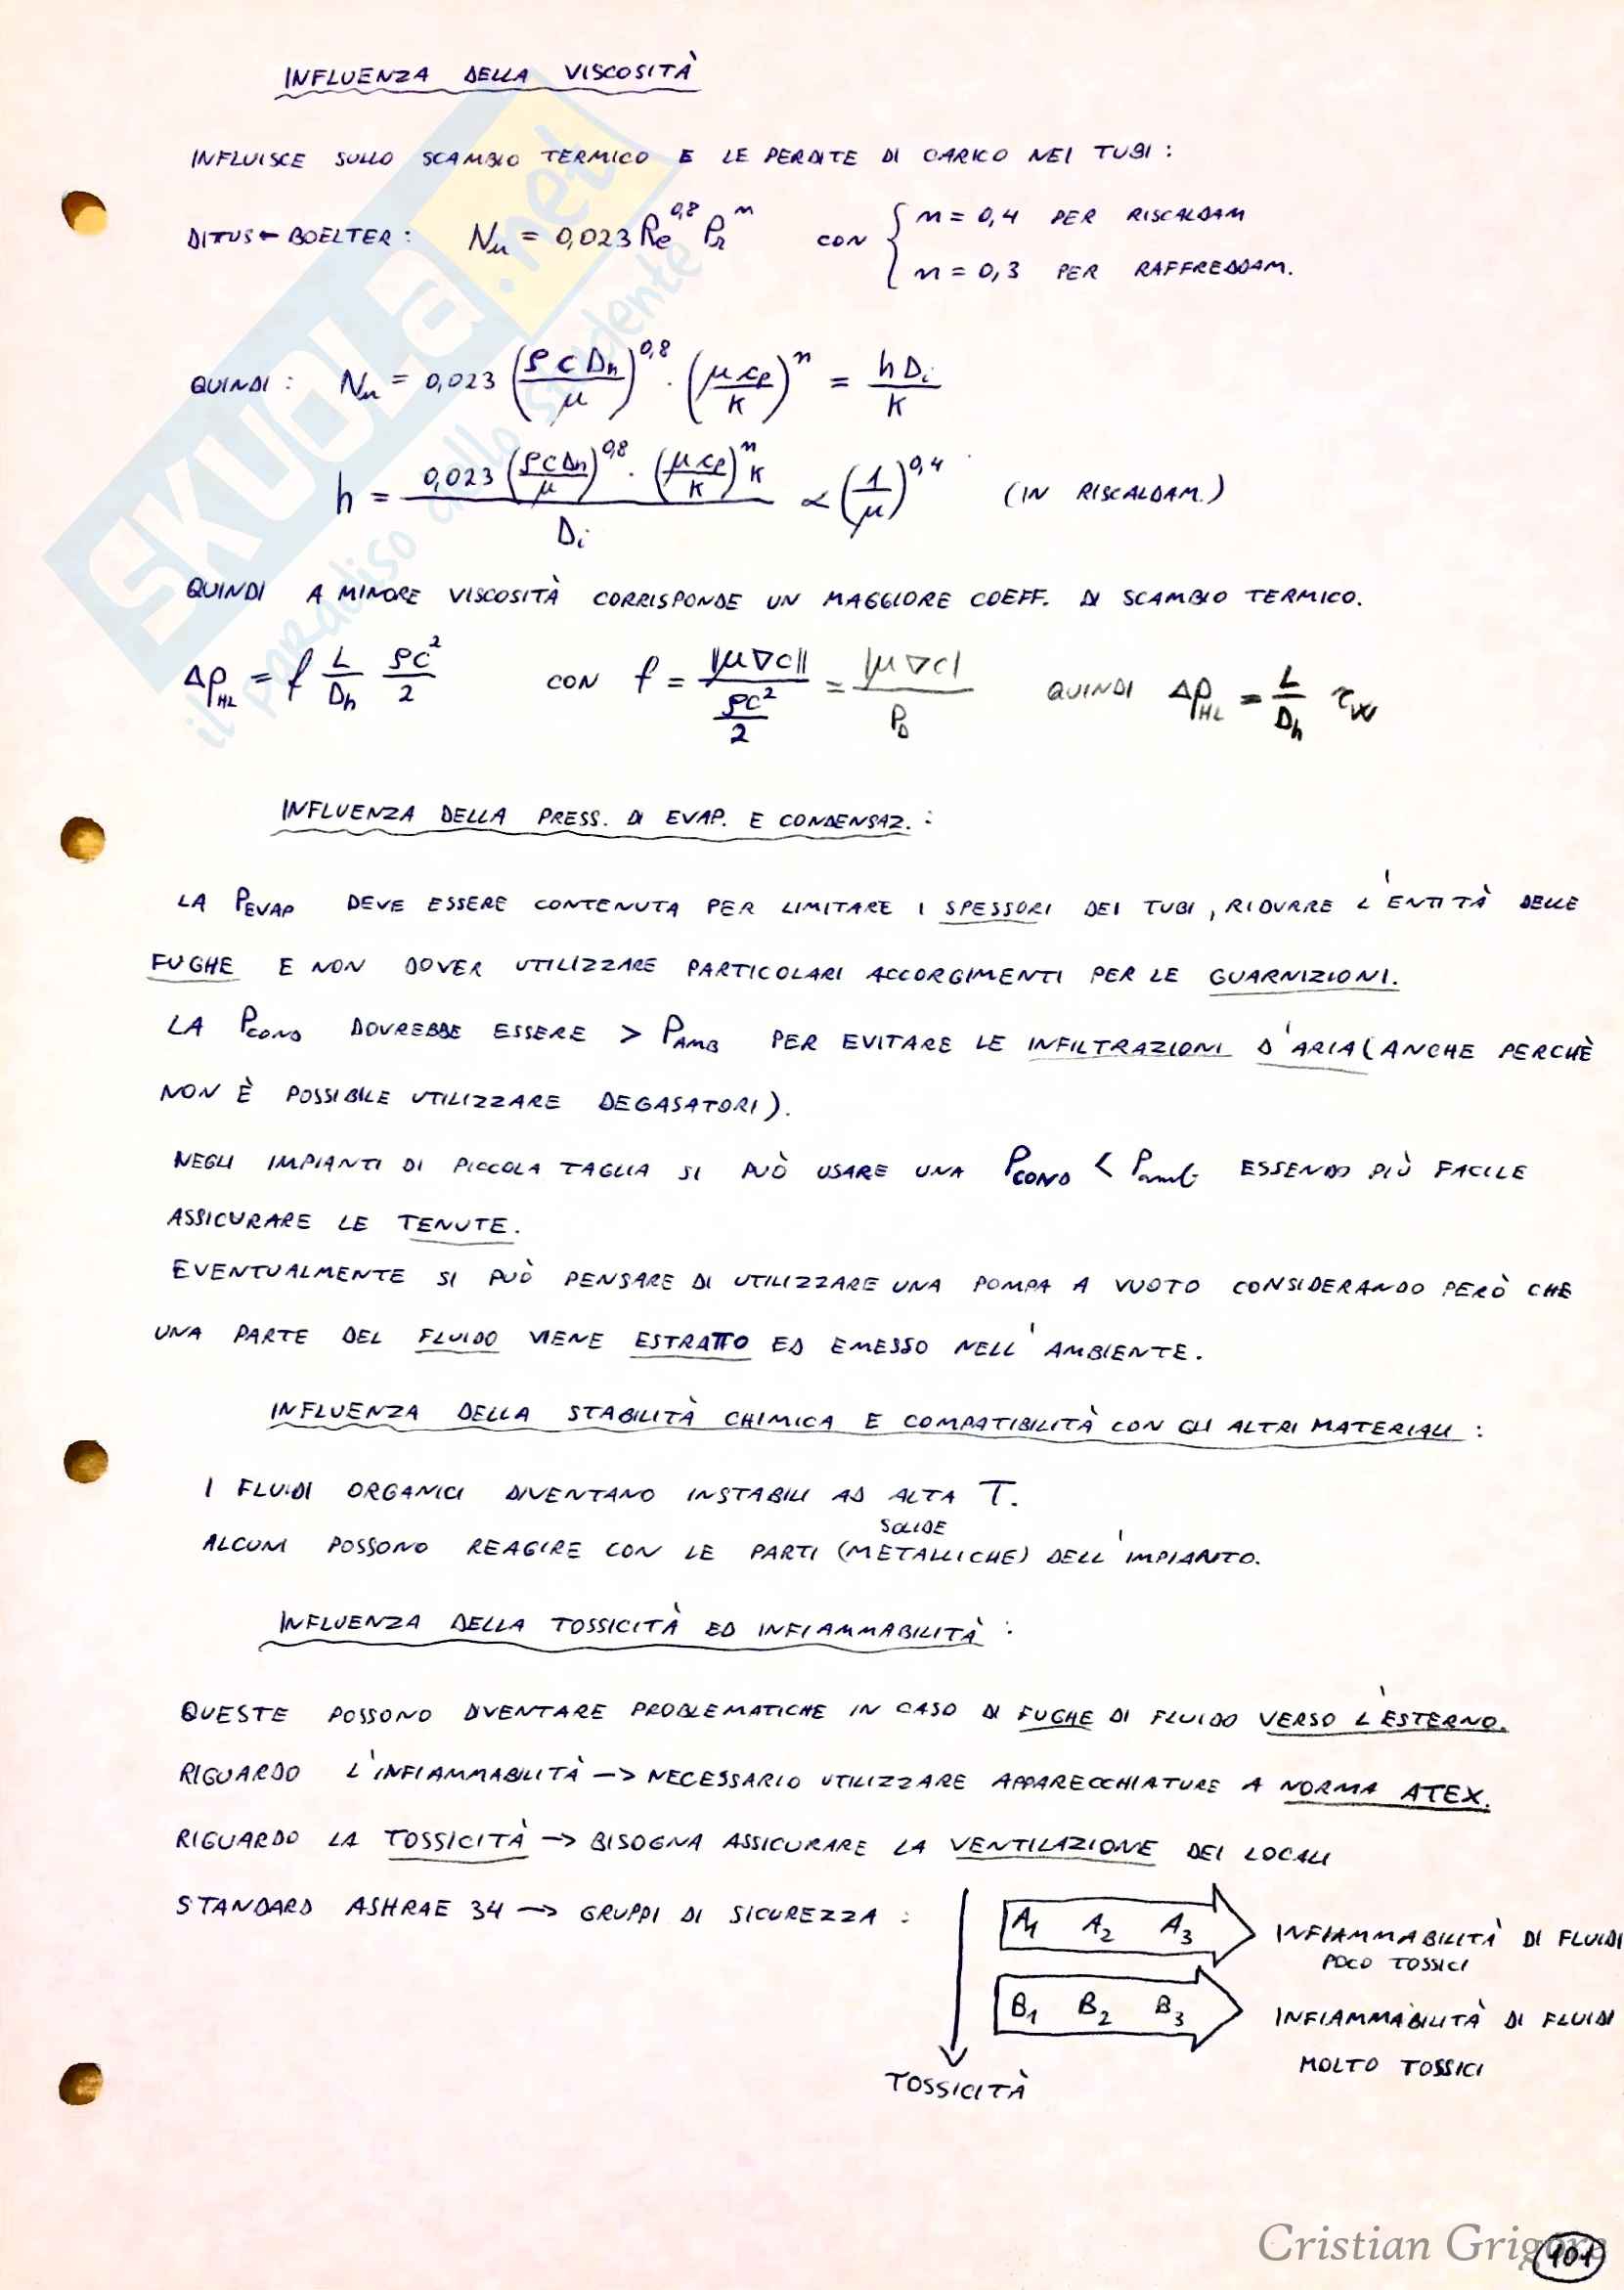 INFLUENZA DELLA VISCOSITÀ
INFLUISCE SULLO SCAMBIO TERMICO E LE PERDITE DI CARICO NEI TUBI :
DITUS - BOELTER : Nu = 0,023 Re^0,8 Pr^n CON { n = 0,4 PER RISCALDAM
n = 0,3 PER RAFFREDDAM.
QUINDI : Nu = 0,023 (ρ c Dh / μ)^0,8 · (μ cp / K)^n = h Di / K
h = 0,023 (ρ c Dh / μ)^0,8 · (μ cp / K)^n K / Di ∝ (1/μ)^0,4 (IN RISCALDAM.)
QUINDI A MINORE VISCOSITÀ CORRISPONDE UN MAGGIORE COEFF. DI SCAMBIO TERMICO.
Δp_HL = f L/Dh ρc²/2 CON f = |μ∇c| / (ρc²/2) = |μ∇c| / PD QUINDI Δp_HL = L/Dh τw
INFLUENZA DELLA PRESS. DI EVAP. E CONDENSAZ. :
LA PEVAP DEVE ESSERE CONTENUTA PER LIMITARE I SPESSORI DEI TUBI, RIDURRE L'ENTITÀ DELLE
FUGHE E NON DOVER UTILIZZARE PARTICOLARI ACCORGIMENTI PER LE GUARNIZIONI.
LA PCOND DOVREBBE ESSERE > PAMB PER EVITARE LE INFILTRAZIONI D'ARIA (ANCHE PERCHÈ
NON È POSSIBILE UTILIZZARE DEGASATORI).
NEGLI IMPIANTI DI PICCOLA TAGLIA SI PUÒ USARE UNA PCOND < Pamb ESSENDO PIÙ FACILE
ASSICURARE LE TENUTE.
EVENTUALMENTE SI PUÒ PENSARE DI UTILIZZARE UNA POMPA A VUOTO CONSIDERANDO PERÒ CHE
UNA PARTE DEL FLUIDO VIENE ESTRATTO ED EMESSO NELL'AMBIENTE.
INFLUENZA DELLA STABILITÀ CHIMICA E COMPATIBILITÀ CON GLI ALTRI MATERIALI :
I FLUIDI ORGANICI DIVENTANO INSTABILI AD ALTA T.
SOLIDE
ALCUNI POSSONO REAGIRE CON LE PARTI (METALLICHE) DELL'IMPIANTO.
INFLUENZA DELLA TOSSICITÀ ED INFIAMMABILITÀ :
QUESTE POSSONO DIVENTARE PROBLEMATICHE IN CASO DI FUGHE DI FLUIDO VERSO L'ESTERNO.
RIGUARDO L'INFIAMMABILITÀ -> NECESSARIO UTILIZZARE APPARECCHIATURE A NORMA ATEX.
RIGUARDO LA TOSSICITÀ -> BISOGNA ASSICURARE LA VENTILAZIONE DEI LOCALI
STANDARD ASHRAE 34 -> GRUPPI DI SICUREZZA :
A1 A2 A3 INFIAMMABILITÀ DI FLUIDI
POCO TOSSICI
B1 B2 B3 INFIAMMABILITÀ DI FLUIDI
MOLTO TOSSICI
TOSSICITÀ
SKUOLA.net
il paradiso dello studente
Cristian Grigore
101